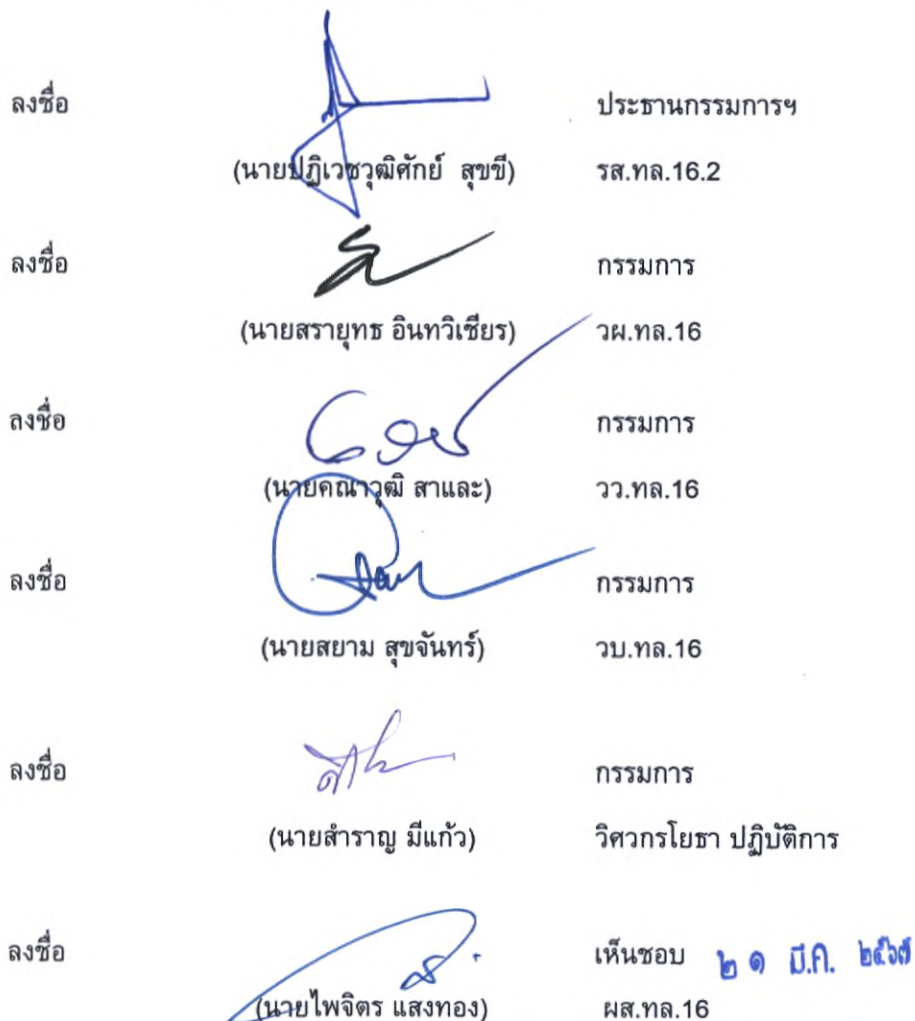 ลงชื่อ ประธานกรรมการฯ
(นายปฏิเวชวุฒิศักย์ สุขขี) รส.ทล.16.2
ลงชื่อ กรรมการ
(นายสรายุทธ อินทวิเชียร) วผ.ทล.16
ลงชื่อ กรรมการ
(นายคณาวุฒิ สาและ) วว.ทล.16
ลงชื่อ กรรมการ
(นายสยาม สุขจันทร์) วบ.ทล.16
ลงชื่อ กรรมการ
(นายสำราญ มีแก้ว) วิศวกรโยธา ปฏิบัติการ
ลงชื่อ เห็นชอบ ๒๑ มี.ค. ๒๕๖๗
(นายไพจิตร แสงทอง) ผส.ทล.16